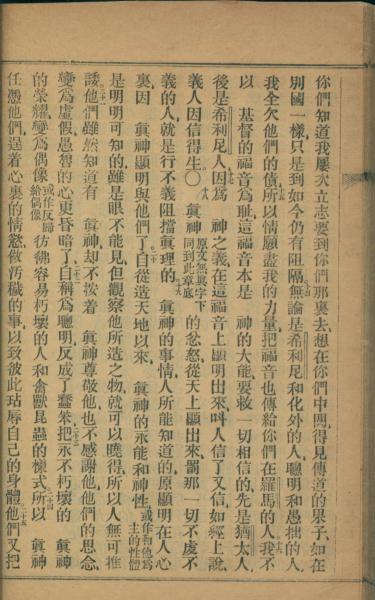 你們知道我屢次立志要到你們那裏去、想在你們中間、得見傳道的果子、如在
別國一樣、只是到如今仍有阻隔、無論是希利尼和化外的人、聰明和愚拙的人、
我全欠他們的債、所以情願盡我的力量、把福音也傳給你們在羅馬的人、我不
以　基督的福音爲恥、這福音本是　神的大能、要救一切相信的、先是猶太人、
後是希利尼人、因爲　神之義在這福音上顯明出來、叫人信了又信、如經上說、
義人因信得生〇　眞神原文無眞字下同到此章底的忿怒、從天上顯出來、罰那一切不虔不
義的人、就是行不義阻擋眞理的、　眞神的事情、人所能知道的、原顯明在人心
裏、因　眞神顯明與他們了、自從造天地以來、　眞神的永能和神性、或作和他爲主的性體
是明明可知的、雖是眼不能見、但觀察他所造之物、就可以曉得、所以人無可推
諉、他們雖然知道有　眞神、却不按着　眞神尊敬他、也不感謝他、他們的思念、
變爲虛假、愚魯的心更昏暗了、自稱爲聰明、反成了蠢笨、把永不朽壞的　眞神
的榮耀變爲偶像或作反歸給偶像彷彿容易朽壞的人、和禽獸昆蟲的樣式、所以　眞神
任憑他們、逞着心裏的情慾、做污穢的事、以致彼此玷辱自己的身體、他們又把